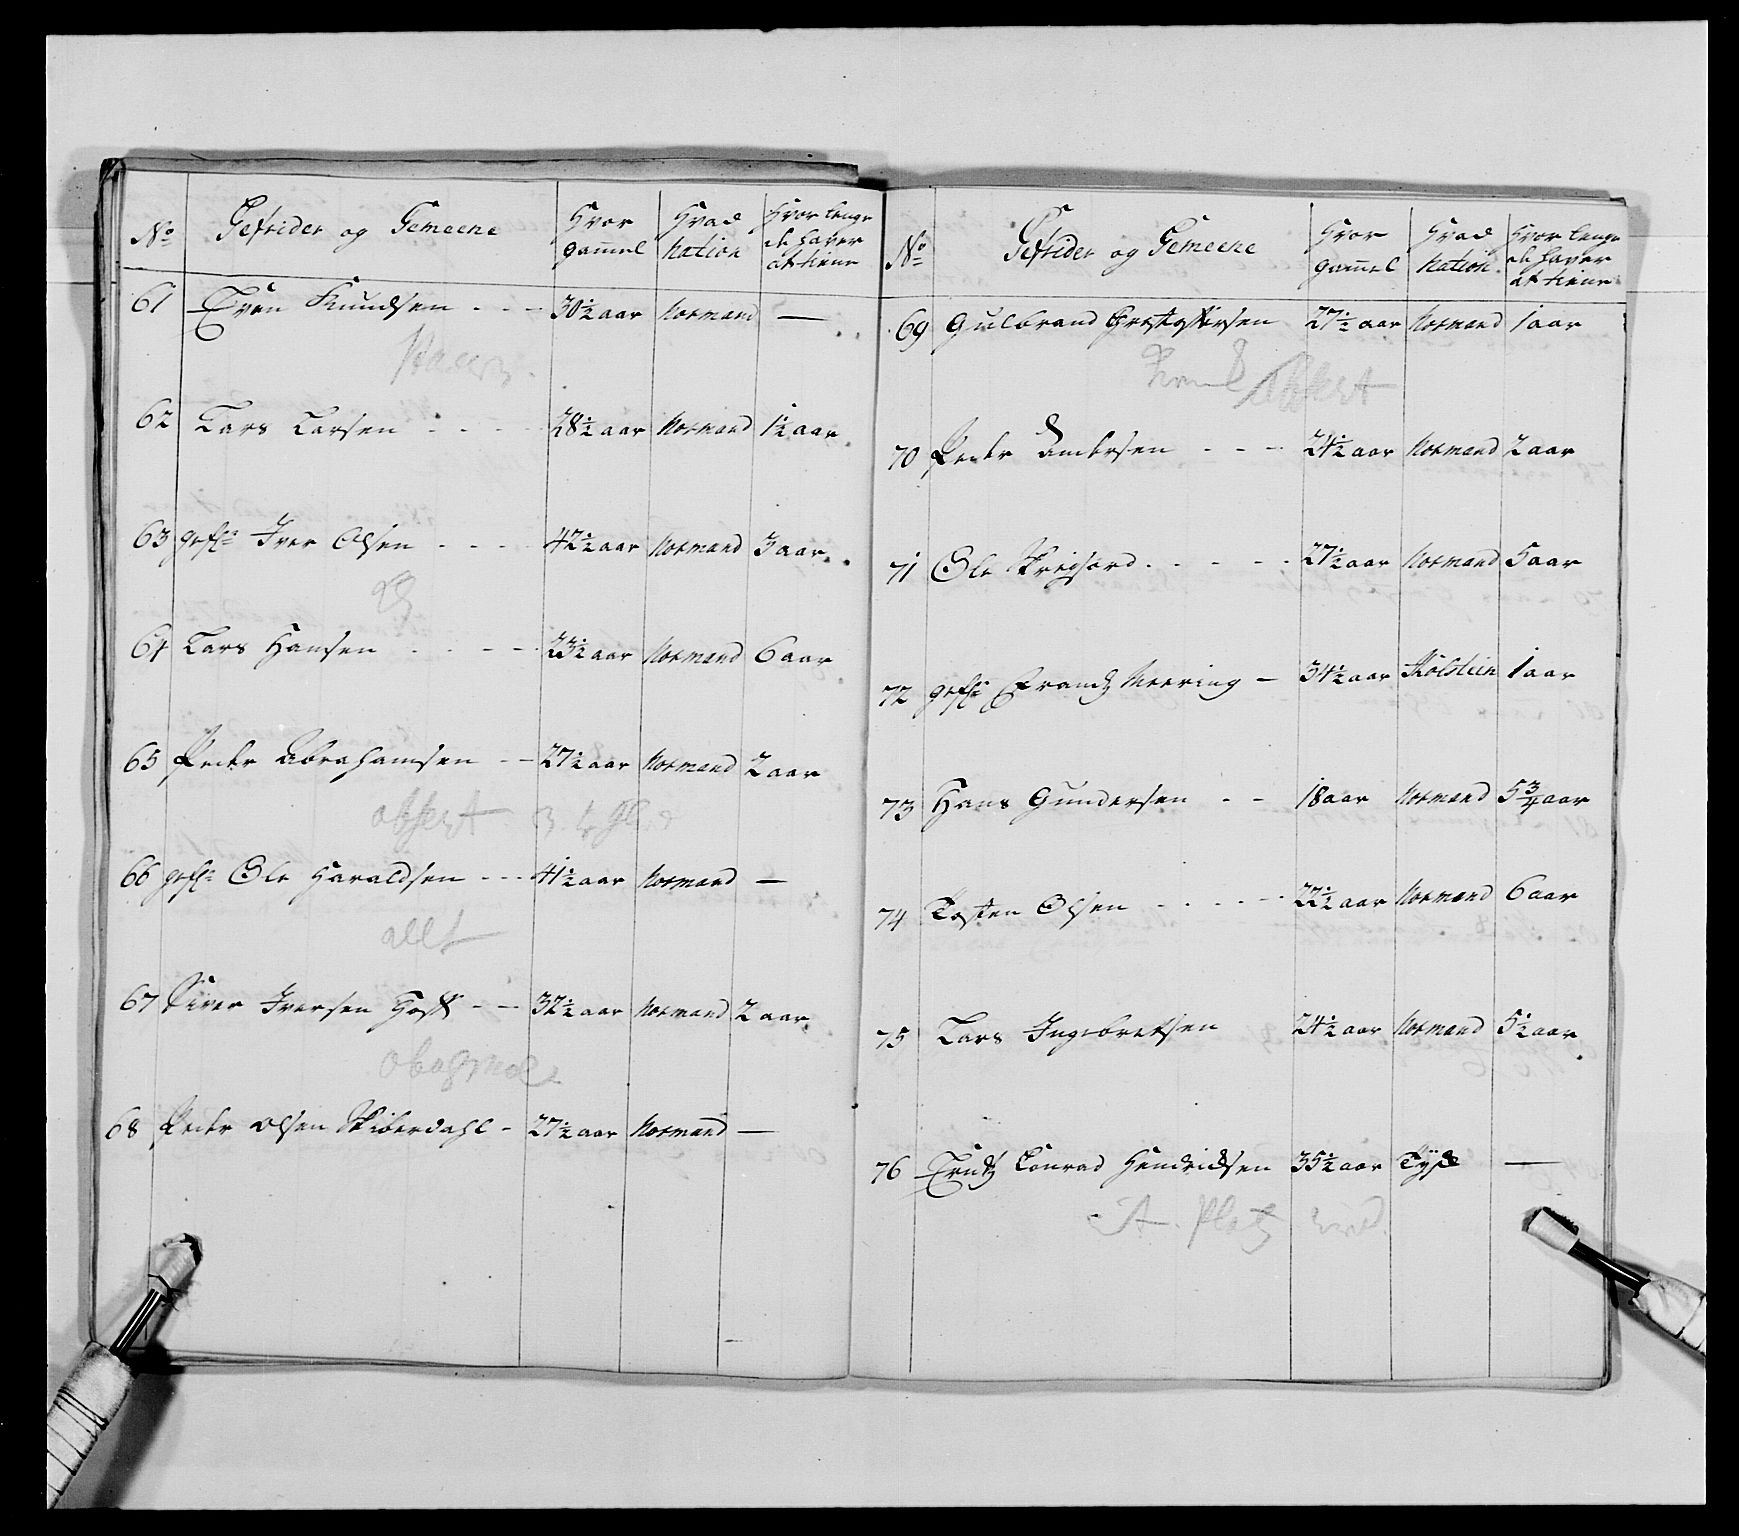 No Gefrider og Gemeene Hvor gammel Hvad Nation Hvor lenge de haver at tiene
61 Even Knudsen - - - 30½ aar Normand —
62 Lars Larsen - - - - 28½ aar Normand 1½ aar
63 gefr: Iver Olsen - - - - 42½ aar Normand 3 aar
64 Lars Hansen - - - - 23½ aar Normand 6 aar
65 Peder Abrahamsen - - 27½ aar Normand 2 aar
66 gefr: Ole Haraldsen - - - 41½ aar Normand —
allt
67 Siver Iversen - - 32½ aar Normand 2 aar
68 Peder Olsen Skiberdahl - 27½ aar Normand —
No Gefrider og Gemeene Hvor gammel Hvad Nation Hvor lenge de haver at tiene
69 Gulbrand 27½ aar Normand 1 aar
70 Peder Andersen - - - 24½ aar Normand 2 aar
71 Ole - - - - - 27½ aar Normand 5 aar
72 gefr: Frandz Meering - 34½ aar Holstein 1 aar
73 Hans Gundersen - - 18 aar Normand 5¾ aar
74 Tosten Olsen - - - - - 22½ aar Normand 6 aar
75 Lars Ingebretsen 24½ aar Normand 5½ aar
76 Conrad Hendrichsen 35½ aar Tydsk —
Platz